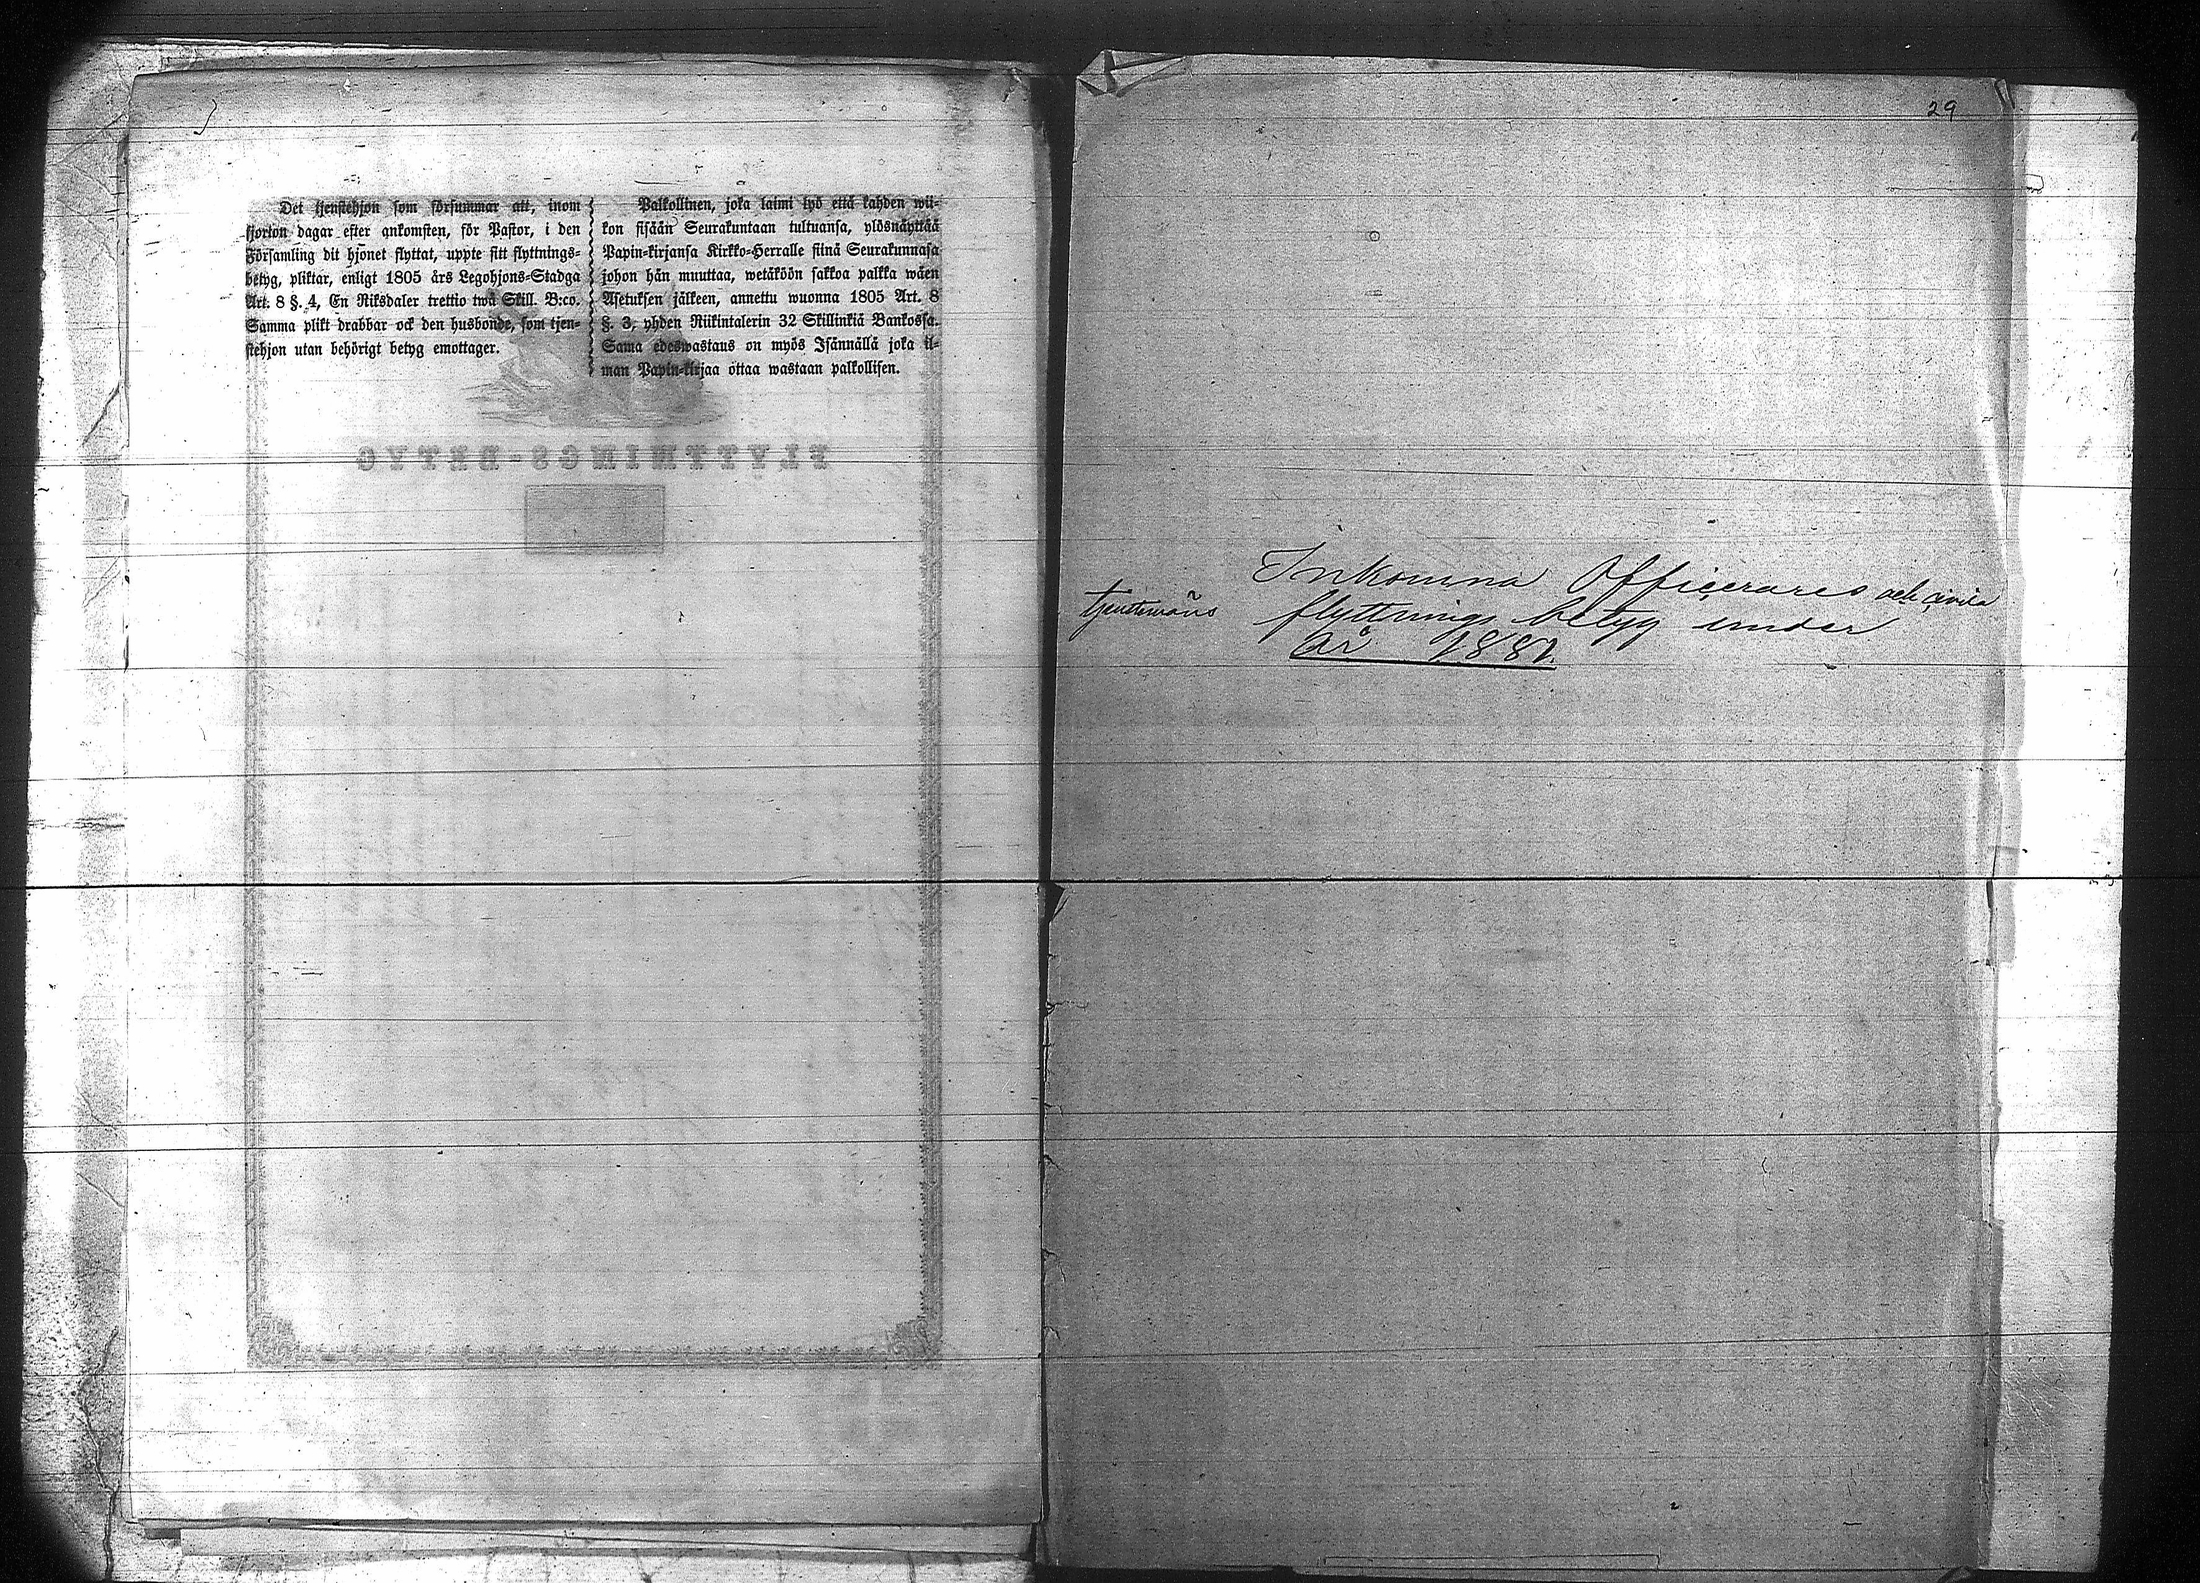 Det tjenstehjon som försummar att, inom
fjorton dagar efter ankomsten, för Pastor, i den
Församling dit hjonet flyttat, uppte sitt flyttnings-
betyg, pliktar, enligt 1805 års Legohjons-Stadga
Art. 8 §. 4, En Riksdaler trettio twå Skill. B:co.
Samma plikt drabbar ock den husbonde, som tjen-
stehjon utan behörigt betyg emottager.
Palkollinen, joka laimi lyö että kahden wii-
kon sisään Seurakuntaan tultuansa, ylösnäyttää
Papin-kirjansa Kirkko-Herralle siinä Seurakunnasa
johon hän muuttaa, wetäköön sakkoa palkka wäen
Asetuksen jälkeen, annettu wuonna 1805 Art. 8
§. 3, yhden Riikintalerin 32 Skillinkiä Bankossa.
Sama edeswastaus on myös Isännällä joka il-
man Papin-kirjaa ottaa wastaan palkollisen.
FLYTTNINGS-BETYG
29
Inkomna Officerares och civila
tjenstemäns flyttnings betyg under
År 1887.